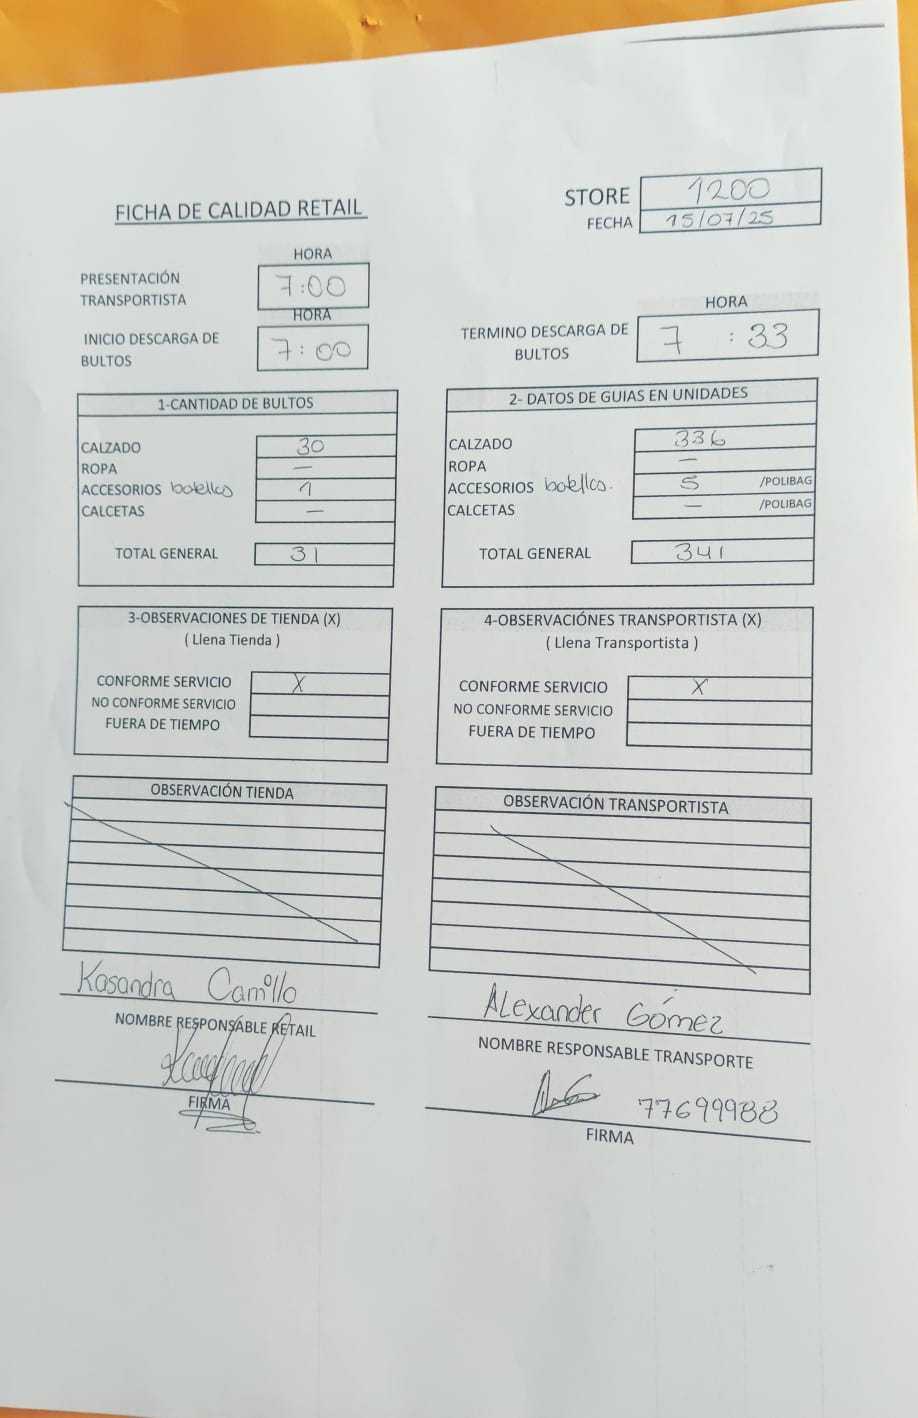 FICHA DE CALIDAD RETAIL
STORE 1200
FECHA 15/07/25
HORA
PRESENTACIÓN TRANSPORTISTA 7:00
HORA
INICIO DESCARGA DE BULTOS 7:00
HORA
TERMINO DESCARGA DE BULTOS 7:33
1-CANTIDAD DE BULTOS
CALZADO 30
ROPA —
ACCESORIOS botellas 1
CALCETAS —
TOTAL GENERAL 31
2- DATOS DE GUIAS EN UNIDADES
CALZADO 336
ROPA —
ACCESORIOS botellas. 5 /POLIBAG
CALCETAS — /POLIBAG
TOTAL GENERAL 341
3-OBSERVACIONES DE TIENDA (X)
( Llena Tienda )
CONFORME SERVICIO X
NO CONFORME SERVICIO
FUERA DE TIEMPO
4-OBSERVACIÓNES TRANSPORTISTA (X)
( Llena Transportista )
CONFORME SERVICIO X
NO CONFORME SERVICIO
FUERA DE TIEMPO
OBSERVACIÓN TIENDA
OBSERVACIÓN TRANSPORTISTA
Kasandra Camillo
NOMBRE RESPONSABLE RETAIL
FIRMA
Alexander Gómez
NOMBRE RESPONSABLE TRANSPORTE
77699988
FIRMA